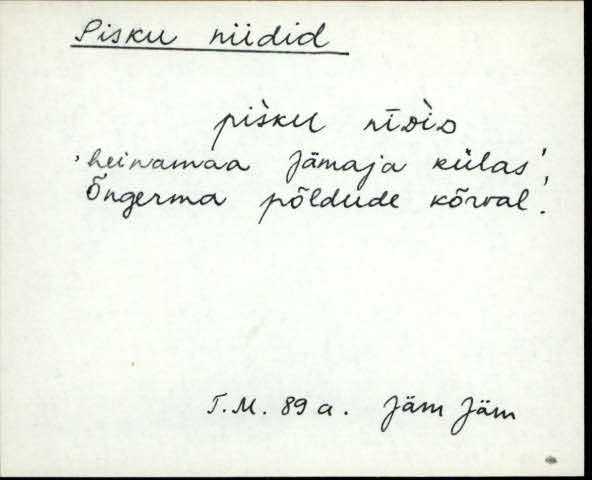 Pisku niidid
pìsku nīᴅìᴅ
'heinamaa Jämaja külas',
Õngerma põldude kõrval'.
T.M. 89 a. Jäm Jäm